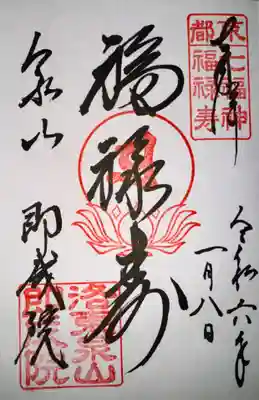 奉拝
令和六年
一月八日
福禄寿
泉山
即成院
都七福神
福禄寿
洛東泉山
即成院